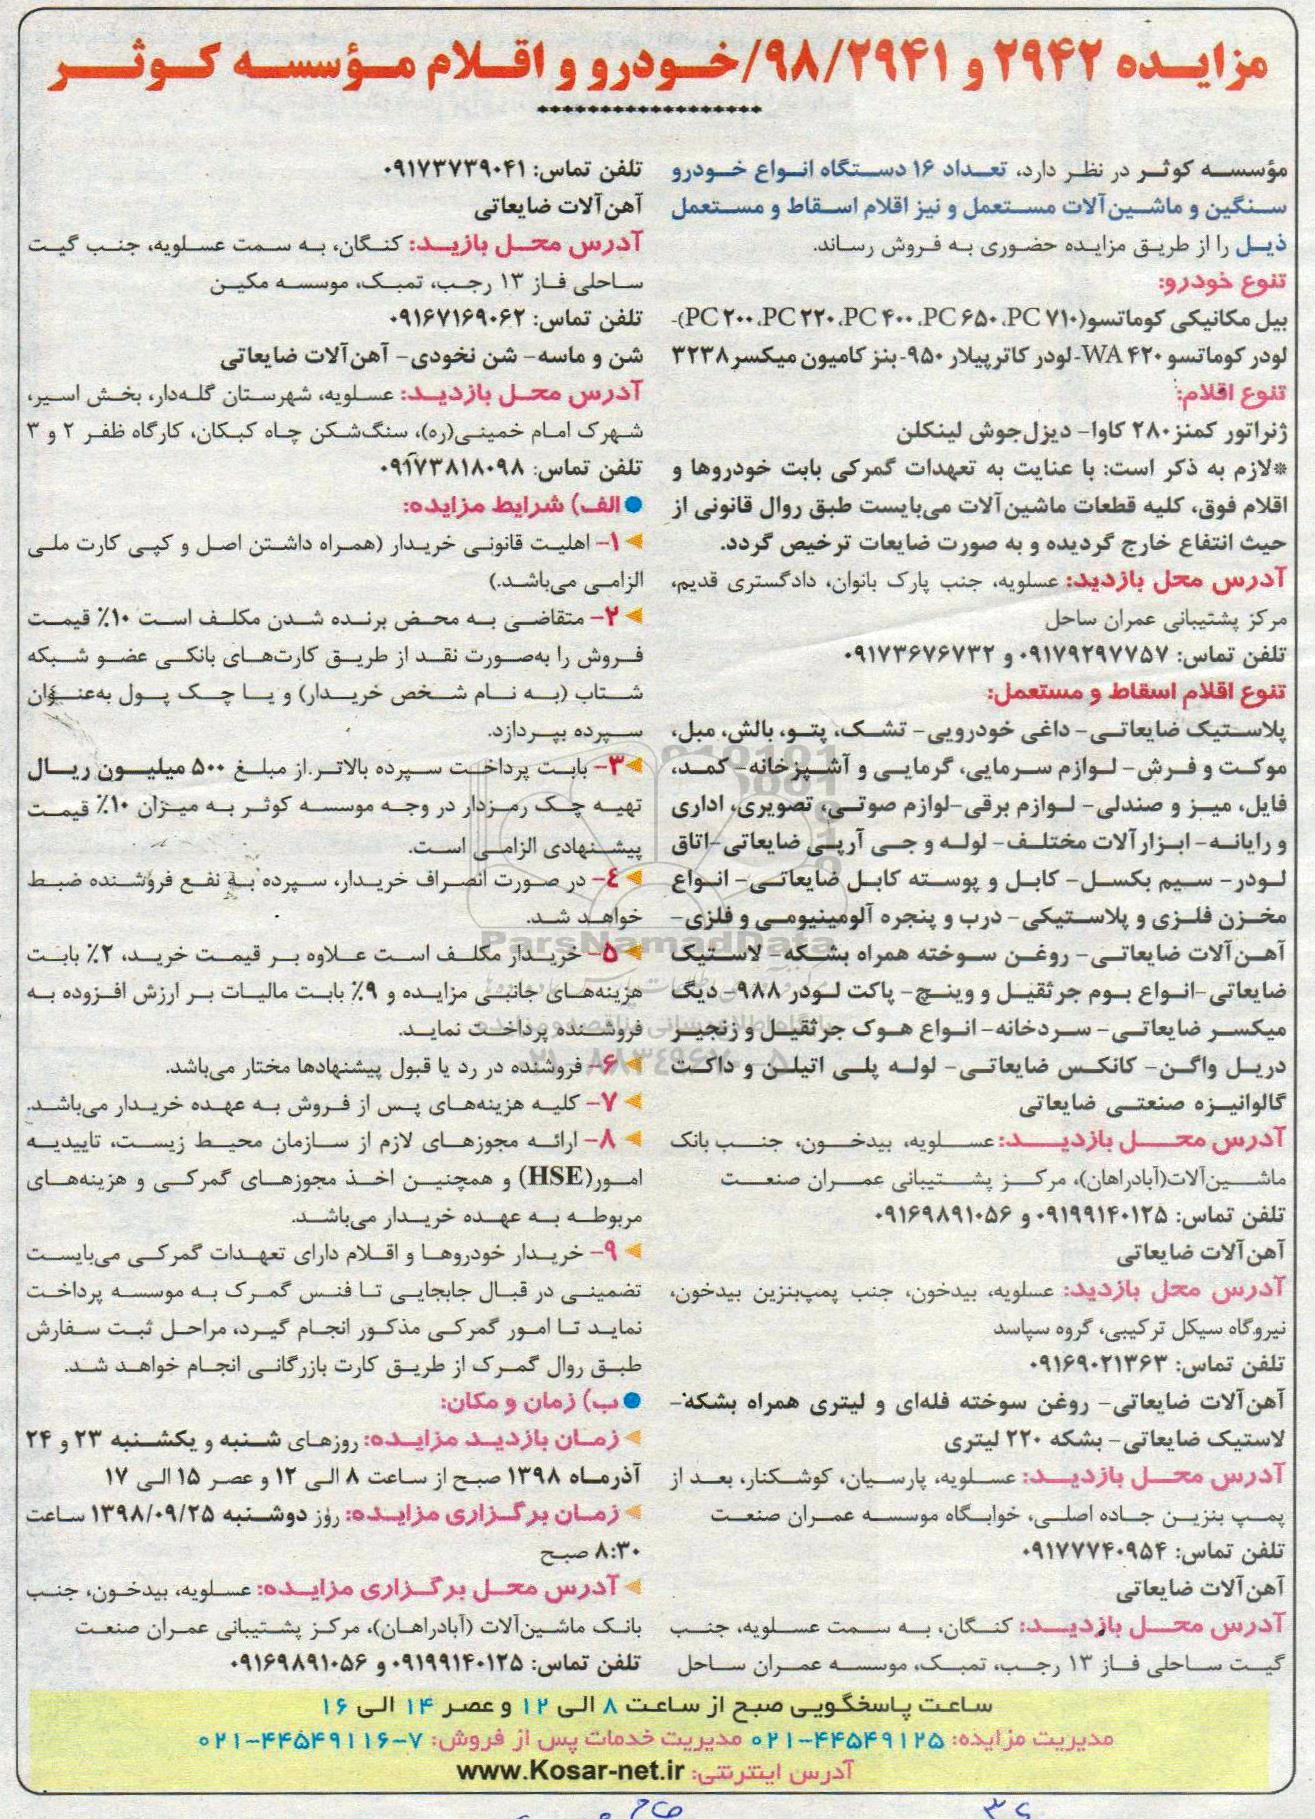 مزایده ۲۹۴۲ و ۹۸/۲۹۴۱/خودرو و اقلام مؤسسه کوثر
مؤسسه کوثر در نظر دارد، تعداد ۱۶ دستگاه انواع خودرو
سنگین و ماشین‌آلات مستعمل و نیز اقلام اسقاط و مستعمل
ذیل را از طریق مزایده حضوری به فروش رساند.
تنوع خودرو:
بیل مکانیکی کوماتسو(PC ۲۰۰ ،PC ۲۲۰ ،PC ۴۰۰ ،PC ۶۵۰ ،PC ۷۱۰)-
لودر کوماتسو WA ۴۲۰-لودر کاترپیلار ۹۵۰-بنز کامیون میکسر ۳۲۳۸
تنوع اقلام:
ژنراتور کمنز ۲۸۰ کاوا- دیزل‌جوش لینکلن
*لازم به ذکر است: با عنایت به تعهدات گمرکی بابت خودروها و
اقلام فوق، کلیه قطعات ماشین‌آلات می‌بایست طبق روال قانونی از
حیث انتفاع خارج گردیده و به صورت ضایعات ترخیص گردد.
آدرس محل بازدید: عسلویه، جنب پارک بانوان، دادگستری قدیم،
مرکز پشتیبانی عمران ساحل
تلفن تماس: ۰۹۱۷۹۲۹۷۷۵۷ و ۰۹۱۷۳۶۷۶۷۳۲
تنوع اقلام اسقاط و مستعمل:
پلاستیک ضایعاتی- داغی خودرویی- تشک، پتو، بالش، مبل،
موکت و فرش- لوازم سرمایی، گرمایی و آشپزخانه- کمد،
فایل، میز و صندلی- لوازم برقی-لوازم صوتی، تصویری، اداری
و رایانه- ابزارآلات مختلف- لوله و جی آرپی ضایعاتی-اتاق
لودر- سیم بکسل- کابل و پوسته کابل ضایعاتی- انواع
مخزن فلزی و پلاستیکی- درب و پنجره آلومینیومی و فلزی-
آهن‌آلات ضایعاتی- روغن سوخته همراه بشکه- لاستیک
ضایعاتی-انواع بوم جرثقیل و وینچ- پاکت لودر ۹۸۸- دیگ
میکسر ضایعاتی- سردخانه- انواع هوک جرثقیل و زنجیر
دریل واگن- کانکس ضایعاتی- لوله پلی اتیلن و داکت
گالوانیزه صنعتی ضایعاتی
آدرس محل بازدید: عسلویه، بیدخون، جنب بانک
ماشین‌آلات(آبادراهان)، مرکز پشتیبانی عمران صنعت
تلفن تماس: ۰۹۱۹۹۱۴۰۱۲۵ و ۰۹۱۶۹۸۹۱۰۵۶
آهن‌آلات ضایعاتی
آدرس محل بازدید: عسلویه، بیدخون، جنب پمپ‌بنزین بیدخون،
نیروگاه سیکل ترکیبی، گروه سپاسد
تلفن تماس: ۰۹۱۶۹۰۲۱۳۶۳
آهن‌آلات ضایعاتی- روغن سوخته فله‌ای و لیتری همراه بشکه-
لاستیک ضایعاتی- بشکه ۲۲۰ لیتری
آدرس محل بازدید: عسلویه، پارسیان، کوشکنار، بعد از
پمپ بنزین جاده اصلی، خوابگاه موسسه عمران صنعت
تلفن تماس: ۰۹۱۷۷۷۴۰۹۵۴
آهن‌آلات ضایعاتی
آدرس محل بازدید: کنگان، به سمت عسلویه، جنب
گیت ساحلی فاز ۱۳ رجب، تمبک، موسسه عمران ساحل
تلفن تماس: ۰۹۱۷۳۷۳۹۰۴۱
آهن‌آلات ضایعاتی
آدرس محل بازید: کنگان، به سمت عسلویه، جنب گیت
ساحلی فاز ۱۳ رجب، تمبک، موسسه مکین
تلفن تماس: ۰۹۱۶۷۱۶۹۰۶۲
شن و ماسه- شن نخودی- آهن‌آلات ضایعاتی
آدرس محل بازدید: عسلویه، شهرستان گله‌دار، بخش اسیر،
شهرک امام خمینی(ره)، سنگ‌شکن چاه کبکان، کارگاه ظفر ۲ و ۳
تلفن تماس: ۰۹۱۷۳۸۱۸۰۹۸
●الف) شرایط مزایده:
◄۱- اهلیت قانونی خریدار (همراه داشتن اصل و کپی کارت ملی
الزامی می‌باشد.)
◄۲- متقاضی به محض برنده شدن مکلف است ۱۰٪ قیمت
فروش را به‌صورت نقد از طریق کارت‌های بانکی عضو شبکه
شتاب (به نام شخص خریدار) و یا چک پول به‌عنوان
سپرده بپردازد.
◄۳- بابت پرداخت سپرده بالاتر از مبلغ ۵۰۰ میلیون ریال
تهیه چک رمزدار در وجه موسسه کوثر به میزان ۱۰٪ قیمت
پیشنهادی الزامی است.
◄۴- در صورت انصراف خریدار، سپرده به نفع فروشنده ضبط
خواهد شد.
◄۵- خریدار مکلف است علاوه بر قیمت خرید، ۲٪ بابت
هزینه‌های جانبی مزایده و ۹٪ بابت مالیات بر ارزش افزوده به
فروشنده پرداخت نماید.
◄۶- فروشنده در رد یا قبول پیشنهادها مختار می‌باشد.
◄۷- کلیه هزینه‌های پس از فروش به عهده خریدار می‌باشد.
◄۸- ارائه مجوزهای لازم از سازمان محیط زیست، تاییدیه
امور(HSE) و همچنین اخذ مجوزهای گمرکی و هزینه‌های
مربوطه به عهده خریدار می‌باشد.
◄۹- خریدار خودروها و اقلام دارای تعهدات گمرکی می‌بایست
تضمینی در قبال جابجایی تا فنس گمرک به موسسه پرداخت
نماید تا امور گمرکی مذکور انجام گیرد، مراحل ثبت سفارش
طبق روال گمرک از طریق کارت بازرگانی انجام خواهد شد.
●ب) زمان و مکان:
◄زمان بازدید مزایده: روزهای شنبه و یکشنبه ۲۳ و ۲۴
آذرماه ۱۳۹۸ صبح از ساعت ۸ الی ۱۲ و عصر ۱۵ الی ۱۷
◄زمان برگزاری مزایده: روز دوشنبه ۱۳۹۸/۰۹/۲۵ ساعت
۸:۳۰ صبح
◄آدرس محل برگزاری مزایده: عسلویه، بیدخون، جنب
بانک ماشین‌آلات (آبادراهان)، مرکز پشتیبانی عمران صنعت
تلفن تماس: ۰۹۱۹۹۱۴۰۱۲۵ و ۰۹۱۶۹۸۹۱۰۵۶
ساعت پاسخگویی صبح از ساعت ۸ الی ۱۲ و عصر ۱۴ الی ۱۶
مدیریت مزایده: ۰۲۱-۴۴۵۴۹۱۲۵ مدیریت خدمات پس از فروش: ۰۲۱-۴۴۵۴۹۱۱۶-۷
آدرس اینترنتی: www.Kosar-net.ir
ParsNamadData